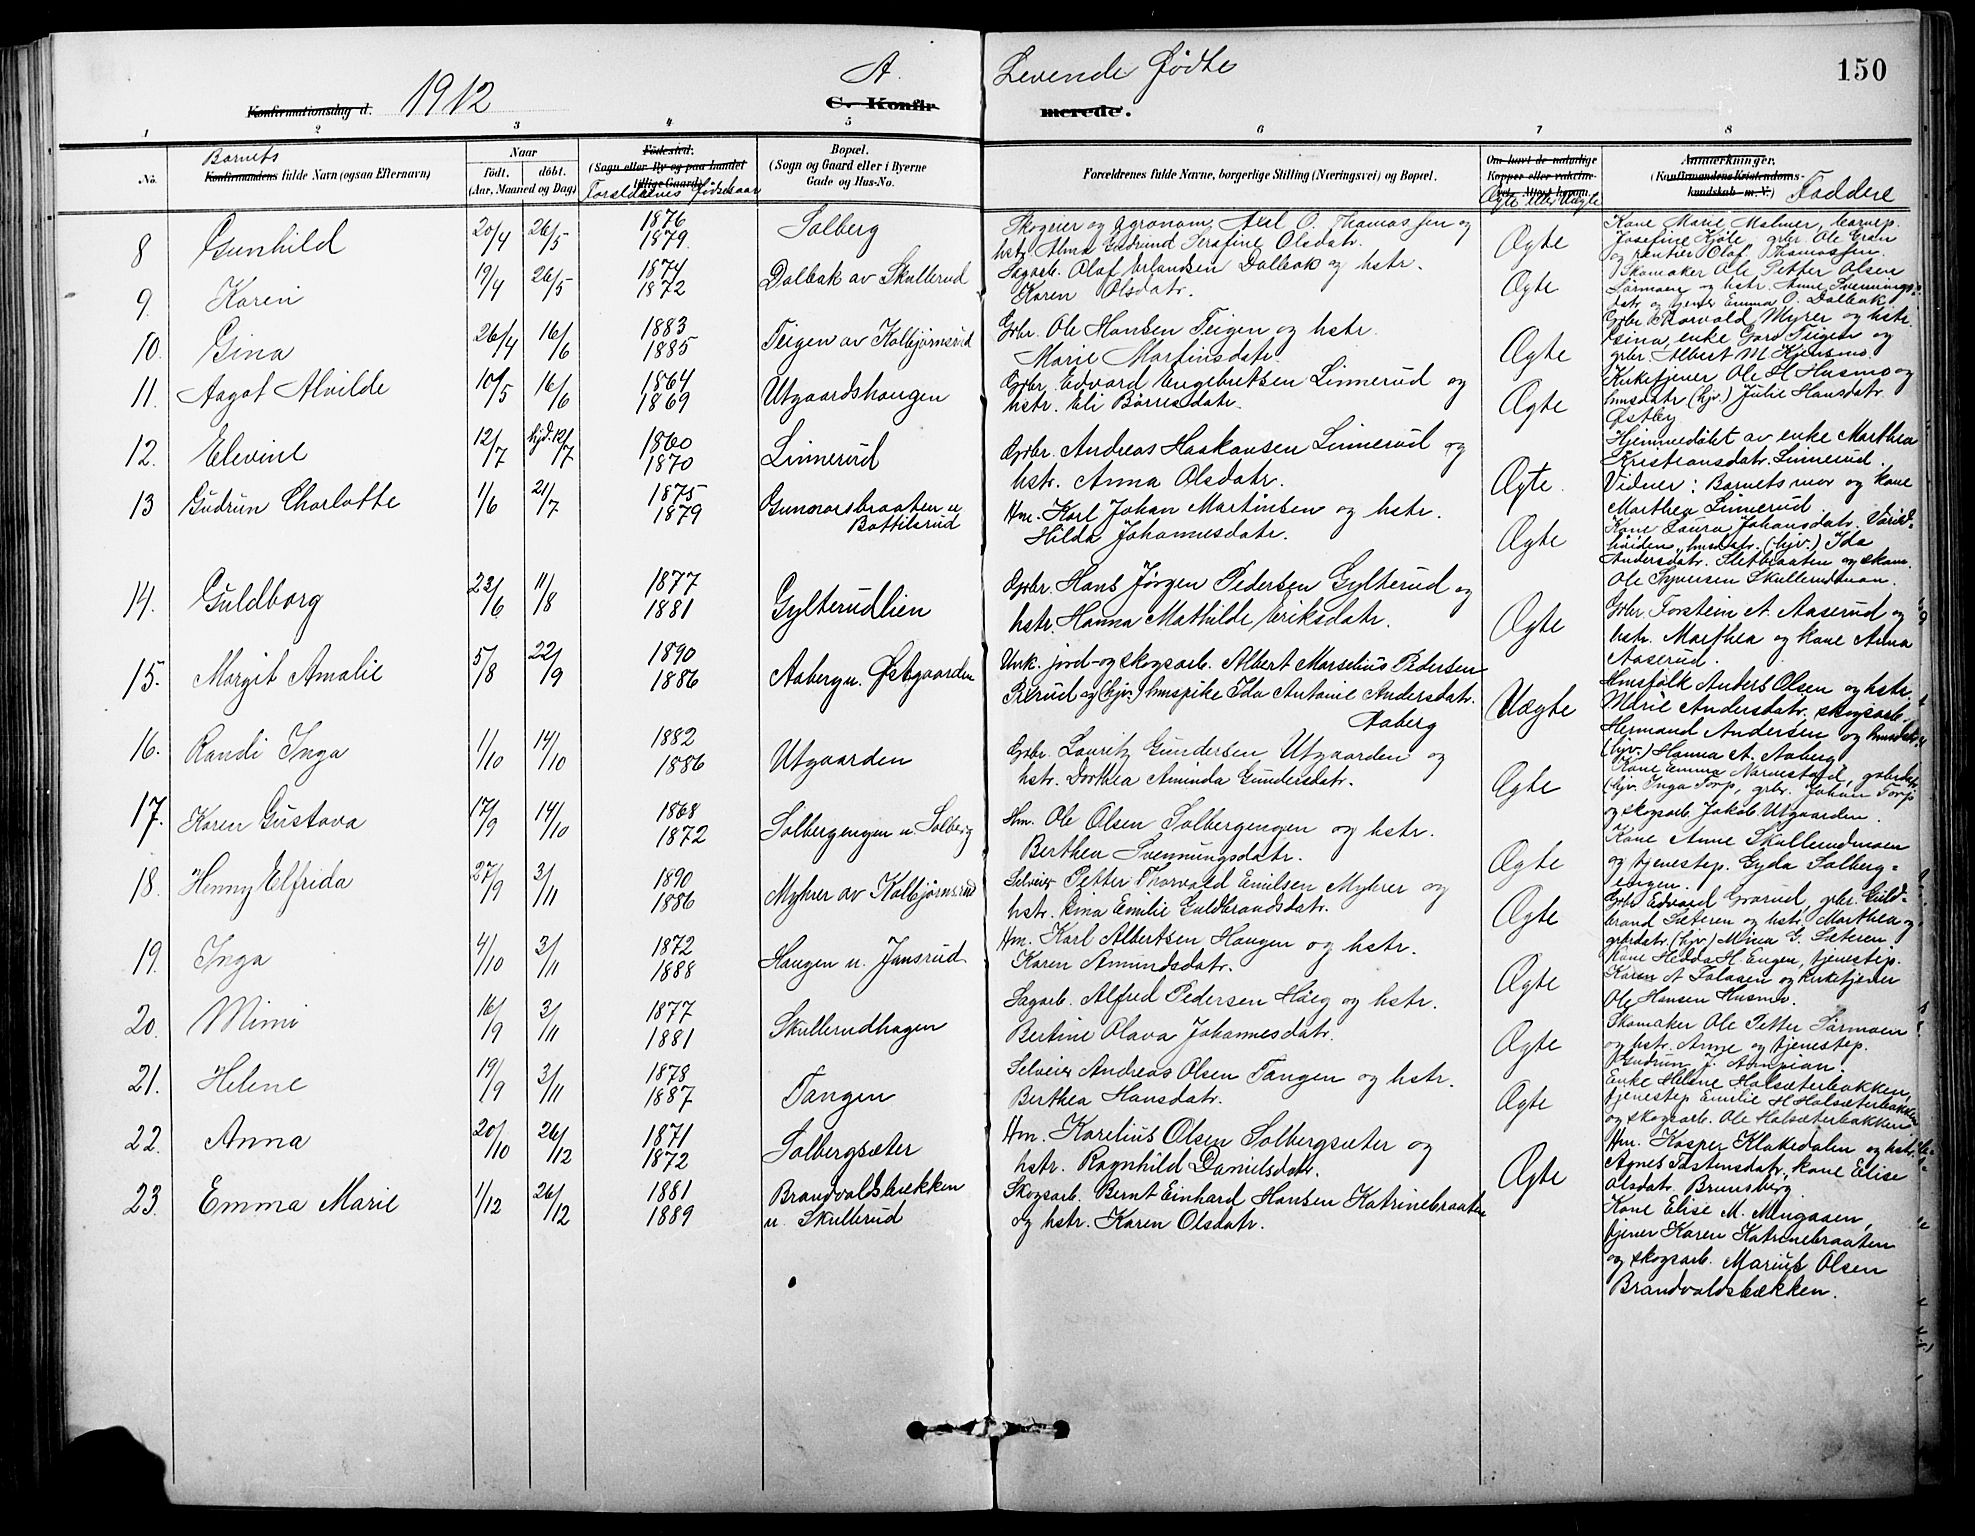 1912
A.
Levende Fødte
150
Konfirmationsdag d.
C. Konfir
merede.
1
2
3
4
5
6
7
8
No.
Barnets
Konfirmandens fulde Navn (ogsaa Efternavn)
Naar
født.
døbt.
(Aar, Maaned og Dag)
Fødested.
(Sogn eller By og paa landet
tillige Gaard)
Forældrenes fødselsaar
Bopæl.
(Sogn og Gaard eller i Byerne
Gade og Hus-No.
Forældrenes fulde Navne, borgerlige Stilling (Næringsvei) og Bopæl.
Om havt de naturlige
Kopper eller vaksine-
ret. Attest herom.
Ægte eller Uægte
Anmerkninger.
(Konfirmandens Kristendoms-
kundskab m. V.)
Faddere
8
Gunhild
20/4
26/5
1876
1879
Solberg
Skogeier og agronom Axel O. Thomassen og
hstr. Alma Gudrund Serafine Olsdatr.
Ægte
Kone Marie Malmer, barnep.
Josefine Kjøle, grbr. Ole Gran
og rentier Olaf Thomassen.
9.
Karen
19/4
26/5
1874
1872
Dalbak av Skullerud
Sagarb. Olaf Erlandsen Dalbak og hstr.
Karen Olsdatr.
Ægte
Skomaker Ole Petter Olsen
Sørmoen og hstr. Anne Svennings-
datr. og tjener Emma O. Dalbak
10.
Gina
26/4
16/6
1883
1885
Teigen av Kolbjørnsrud
Grbr. Ole Hansen Teigen og hstr.
Marie Martinsdatr.
Ægte
Grbr Thorvald Myrer og hstr.
Gina, enke Goro Teigen og
grbr. Albert M.
11.
Aagot Alvilde
10/5
16/6
1864
1869
Utgaardshaugen
Grbr. Edvard Engebretsen Linnerud og
hstr. Eli Børresdatr.
Ægte
Kirketjener Ole H Husmo og
hmsdatr (hjv.) Julie Hansdatr.
Østby
12.
Elevine
12/7
hjd. 12/7
1860
1870
Linnerud
Grbr. Andreas Haakonsen Linnerud og
hstr. Anna Olsdatr.
Ægte.
Hjemmedøbt av enke Marthea
Kristiansdatr. Linnerud.
Vidner: Barnets mor og kone
Marthea Linnerud.
13
Gudrun Charlotte
1/6
21/7
1875
1879
Gunnarsbraaten u.
Bottilsrud
Hm. Karl Johan Martinsen og hstr.
Hilda Johannesdatr.
Ægte
Kone Laura Johansdatr.
høiden, hmsdatr. (hjv.) Ida
Andersdatr. Sletbraaten og skom.
Ole Syversen Skullerudmoen.
14.
Guldborg
23/6
11/8
1877
1881
Gylterudlien
Grbr. Hans Jørgen Pedersen Gylterud og
hstr. Hanna Mathilde Eriksdatr.
Ægte
Grbr. Torstein A. Aaserud og
hstr. Marthea og kone Anna
Aaserud.
15.
Margit Amalie
5/8
22/9
1890
1886
Aaberg u. Østgaarden
Unk. jord- og skogsarb. Albert Marselius Pedersen
Bærud og (hjv.) hmspike Ida Antonie Andersdatr.
Aaberg
Uægte
Hmsfolk Anders Olsen og hstr.
Marie Andersdatr. skogsarb.
Hermand Andersen og hmsdatr.
(hjv.) Hanna A. Aaberg
16.
Randi Inga
1/10
14/10
1882
1886
Utgaarden
Grbr. Lauritz Gundersen Utgaarden og
hstr. Dorthea Aminda Gundersdatr.
Ægte
Kone Emma Navnestad, gaardatr
(hjv. Inga Torp, grbr. Johan Torp
og skogsarb. Jakob Utgaarden.
17.
Karen Gustava
17/9
14/10
1868
1872
Solbergengen u. Solberg
Hm. Ole Olsen Solbergengen og hstr.
Berthea Svenningsdatr.
Ægte
Kone Anne Skullerudmoen
og tjenestep. Gyda Solberg-
engen.
18.
Henny Elfrida
27/9
3/11
1890
1886
Myhrer av Kolbjørnsrud
Selveier Petter Thorvald Emilsen Myhrer og
hstr. Gina Emilie Guldbrandsdatr.
Ægte
Grbr Edvard Grorud, grbr. Guld-
brand Sæteren og hstr. Marthea og
grbrdatr. (hjv.) Mina G. Sæteren
19.
Inga
4/10
3/11
1872
1888
Haugen u. Jansrud
Hm. Karl Albertsen Haugen og hstr.
Karen Amundsdatr.
Ægte
Kone Hedda H. Engen, tjenestep.
Karen A Talaasen og kirketjener
Ole Hansen Husmo.
20.
Mimi
16/9
3/11
1877
1881
Skullerudhagen
Sagarb. Alfred Pedersen Høeg og hstr.
Bertine Olava Johannesdatr.
Ægte
Skomaker Ole Petter Sørmoen
og hstr. Anne og tjenestep.
Gudrun J.
21.
Helene
19/9
3/11
1878
1887
Tangen
Selveier Andreas Olsen Tangen og hstr.
Berthea Hansdatr.
Ægte
Enke Helene Halsæterbakken,
tjenestep Emilie H Halsæterbakken
og skogsarb. Ole Halsæterbakken
22.
Anna
20/10
26/12
1871
1872
Solbergsæter
Hm. Karelius Olsen Solbergsæter og
hstr. Ragnhild Danielsdatr.
Ægte
Hm. Kasper Klokedalen og hstr.
Agnes Tostensdatr, kone Elise
Olsdatr. Brunsberg.
23.
Emma Marie
1/12
26/12
1881
1889
Brandvoldsbækken
u. Skullerud
Skogsarb. Bernt Einhard Hansen Katrinebraaten
og hstr. Karen Olsdatr.
Kone Elise M. Mugaasen,
tjener Karen Katrinebraaten
og skogsarb. Marius Olsen
Brandvoldsbækken.